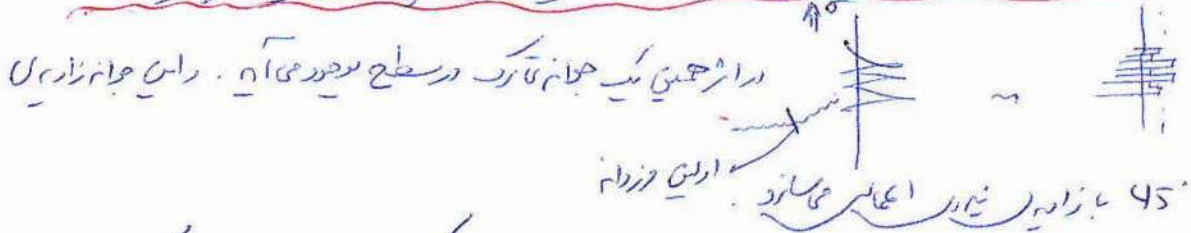 در اثر همین یک جوانه ترک در سطح بوجود می آید. و این جوانه زاویه ی
اولین
45° با زاویه ی نیروی اعمالی می سازد